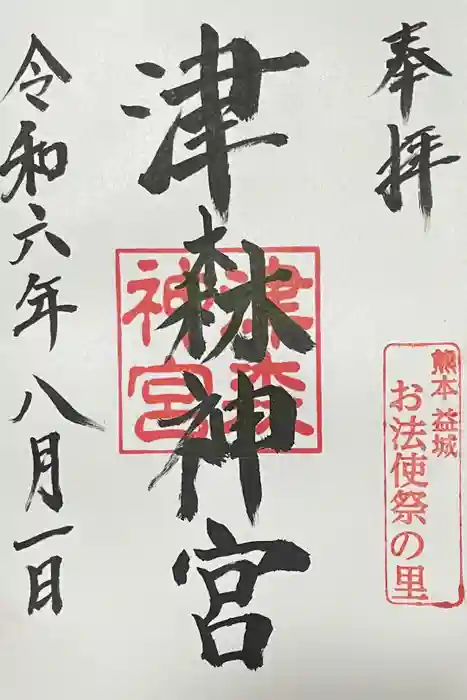 奉拝
熊本益城
お法使祭の里
津森神宮
津森神宮
令和六年八月一日